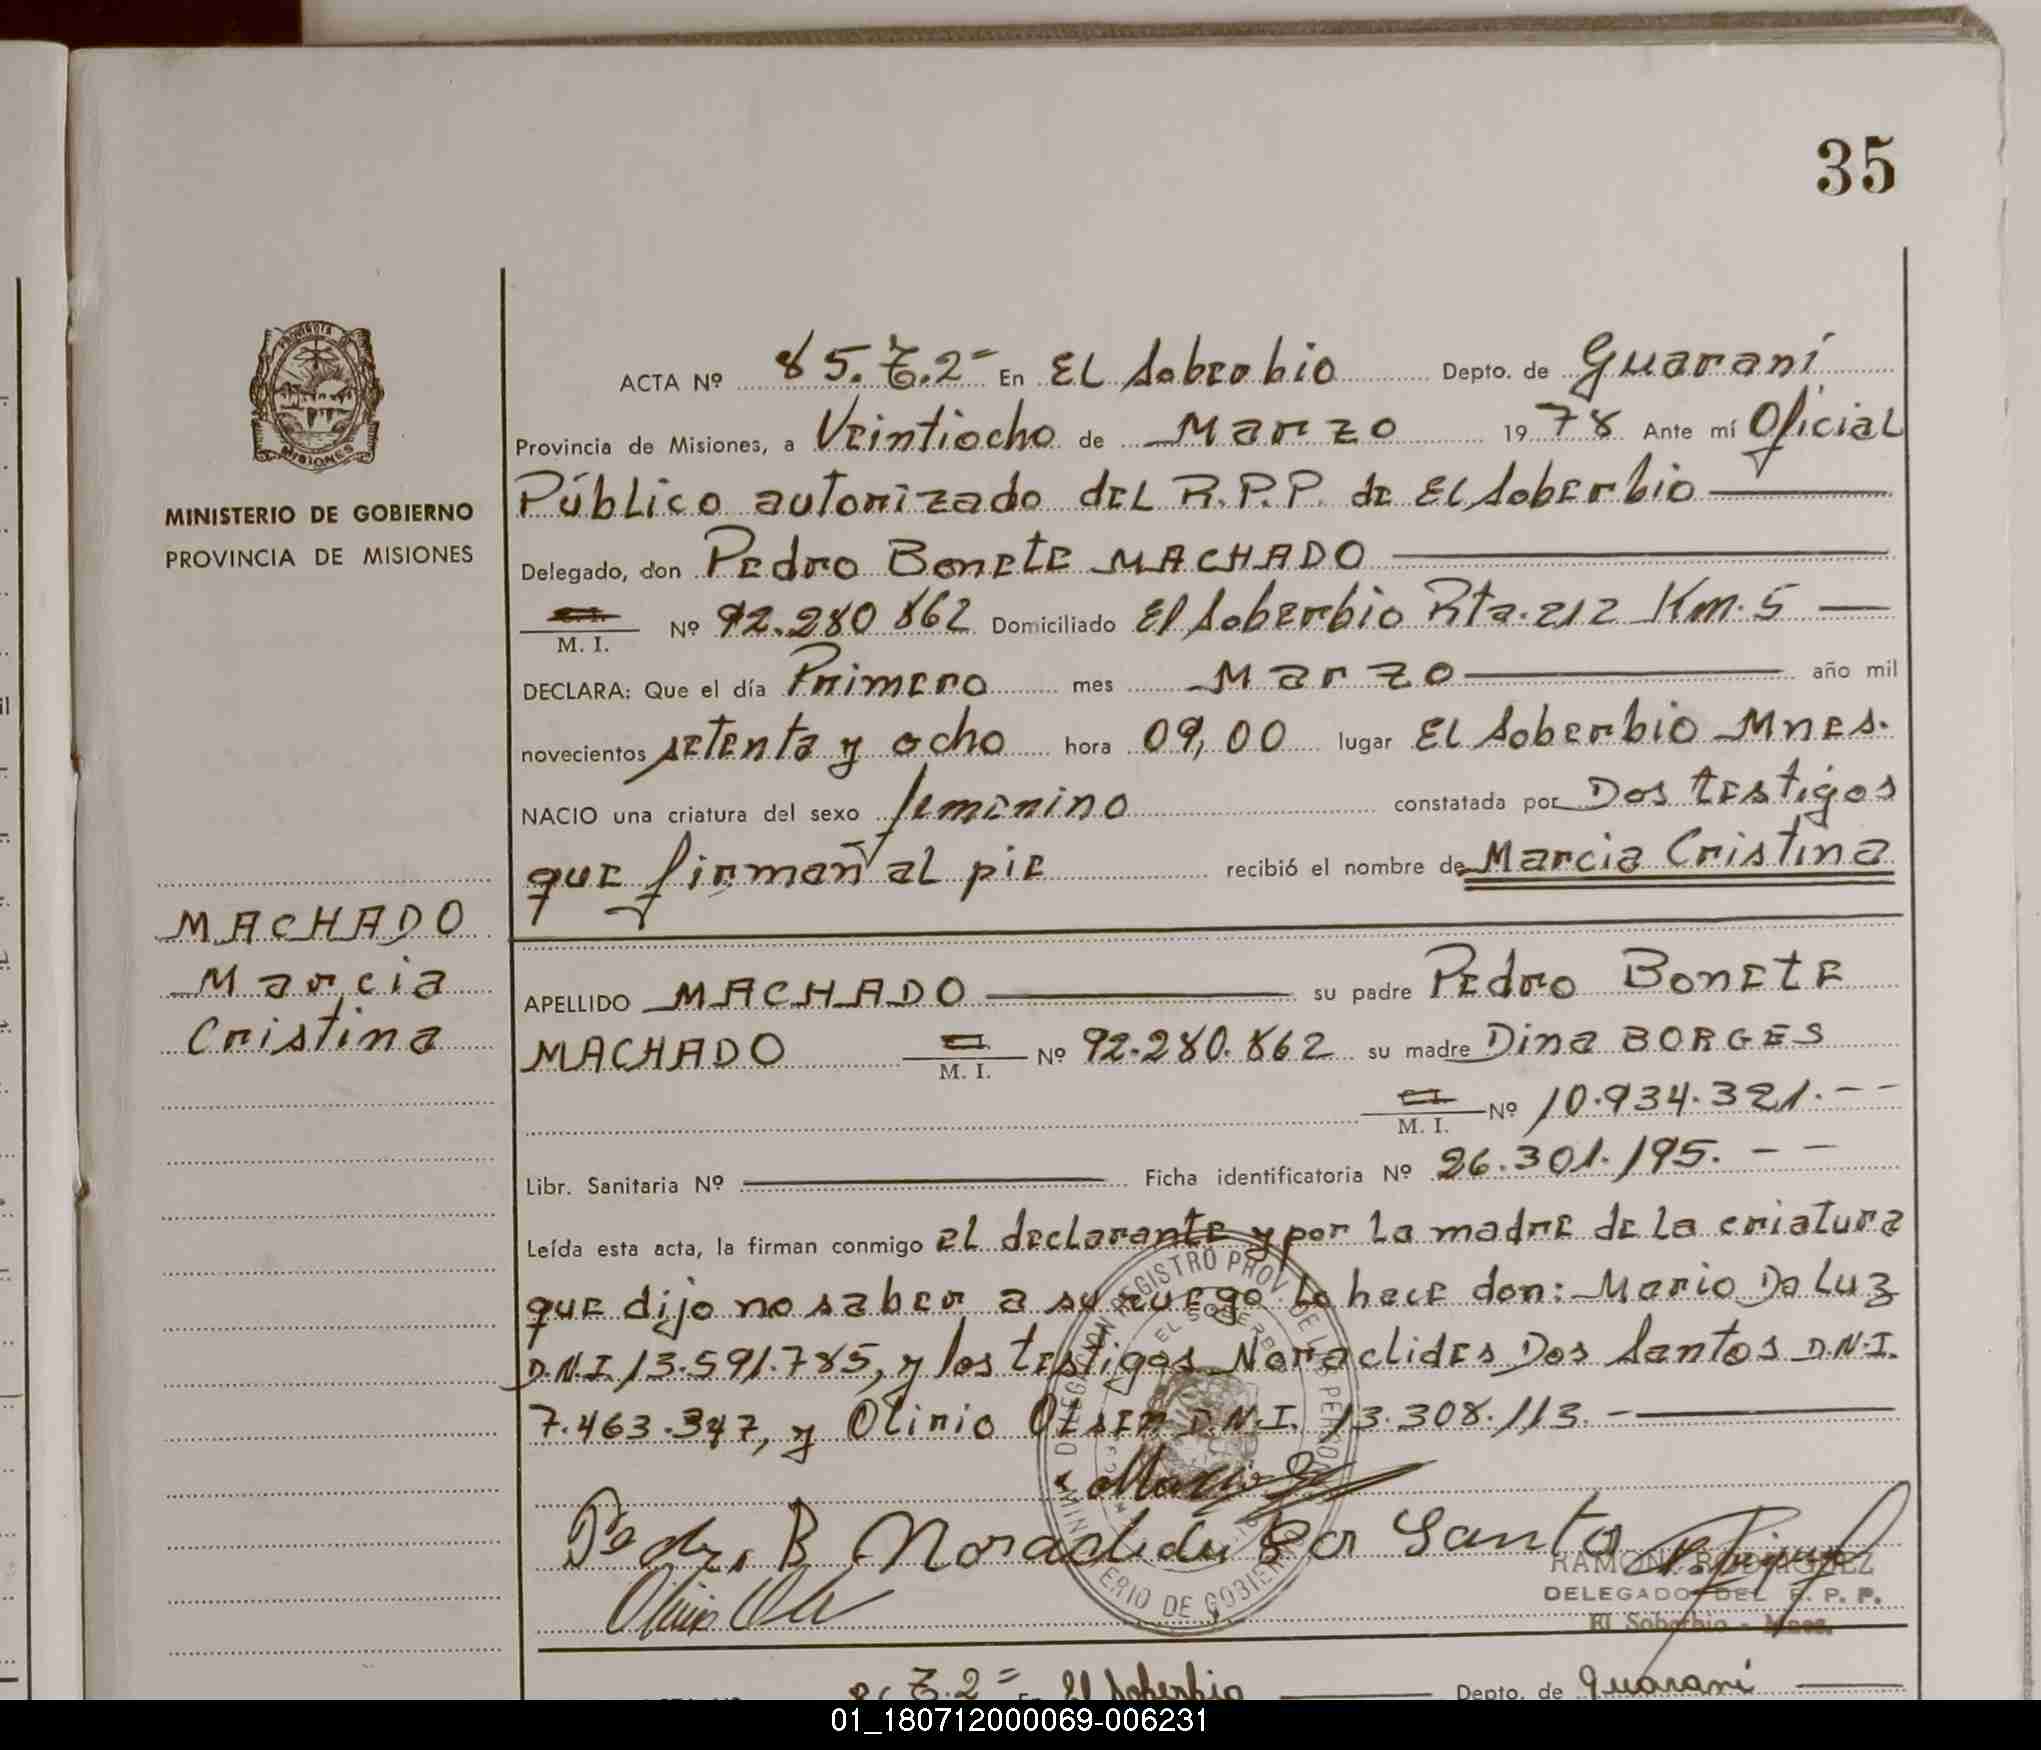 35
ACTA Nº 85.T.2= En EL Soberbio Depto. de Guaraní
Provincia de Misiones, a Veintiocho de Marzo 1978 Ante mí Oficial
Público autorizado del R.P.P. de El Soberbio
MINISTERIO DE GOBIERNO
PROVINCIA DE MISIONES
Delegado, don Pedro Bonete MACHADO
C.I.
M. I. Nº 92.280.862 Domiciliado El Soberbio Rta.212 Km.5
DECLARA: Que el día Primero mes Marzo año mil
novecientos setenta y ocho hora 09,00 lugar El Soberbio Mnes.
NACIO una criatura del sexo femenino constatada por Dos testigos
que firman al pie recibió el nombre de Marcia Cristina
MACHADO
Marcia
Cristina
APELLIDO MACHADO su padre Pedro Bonete
MACHADO C.I. M. I. Nº 92.280.862 su madre Dina BORGES
C.I. M. I. Nº 10.934.321.--
Libr. Sanitaria Nº Ficha identificatoria Nº 26.301.195.--
Leída esta acta, la firman conmigo el declarante y por la madre de la criatura
que dijo no saber a su ruego lo hace don: Mario Da Luz
D.N.I. 13.591.785, y los testigos Noraclides Dos Santos D.N.I.
7.463.347, y Olirio Olsen D.N.I. 13.308.113.-
DELEGACION REGISTRO PROV. DE LAS PERSONAS
EL SOBERBIO
MINISTERIO DE GOBIERNO
Mario
Pedro B Noraclides Dos Santos
RAMON RODRIGUEZ
DELEGADO DEL R. P. P.
El Soberbio - Mnes.
T.2= En El Soberbio Depto. de Guaraní
01_180712000069-006231